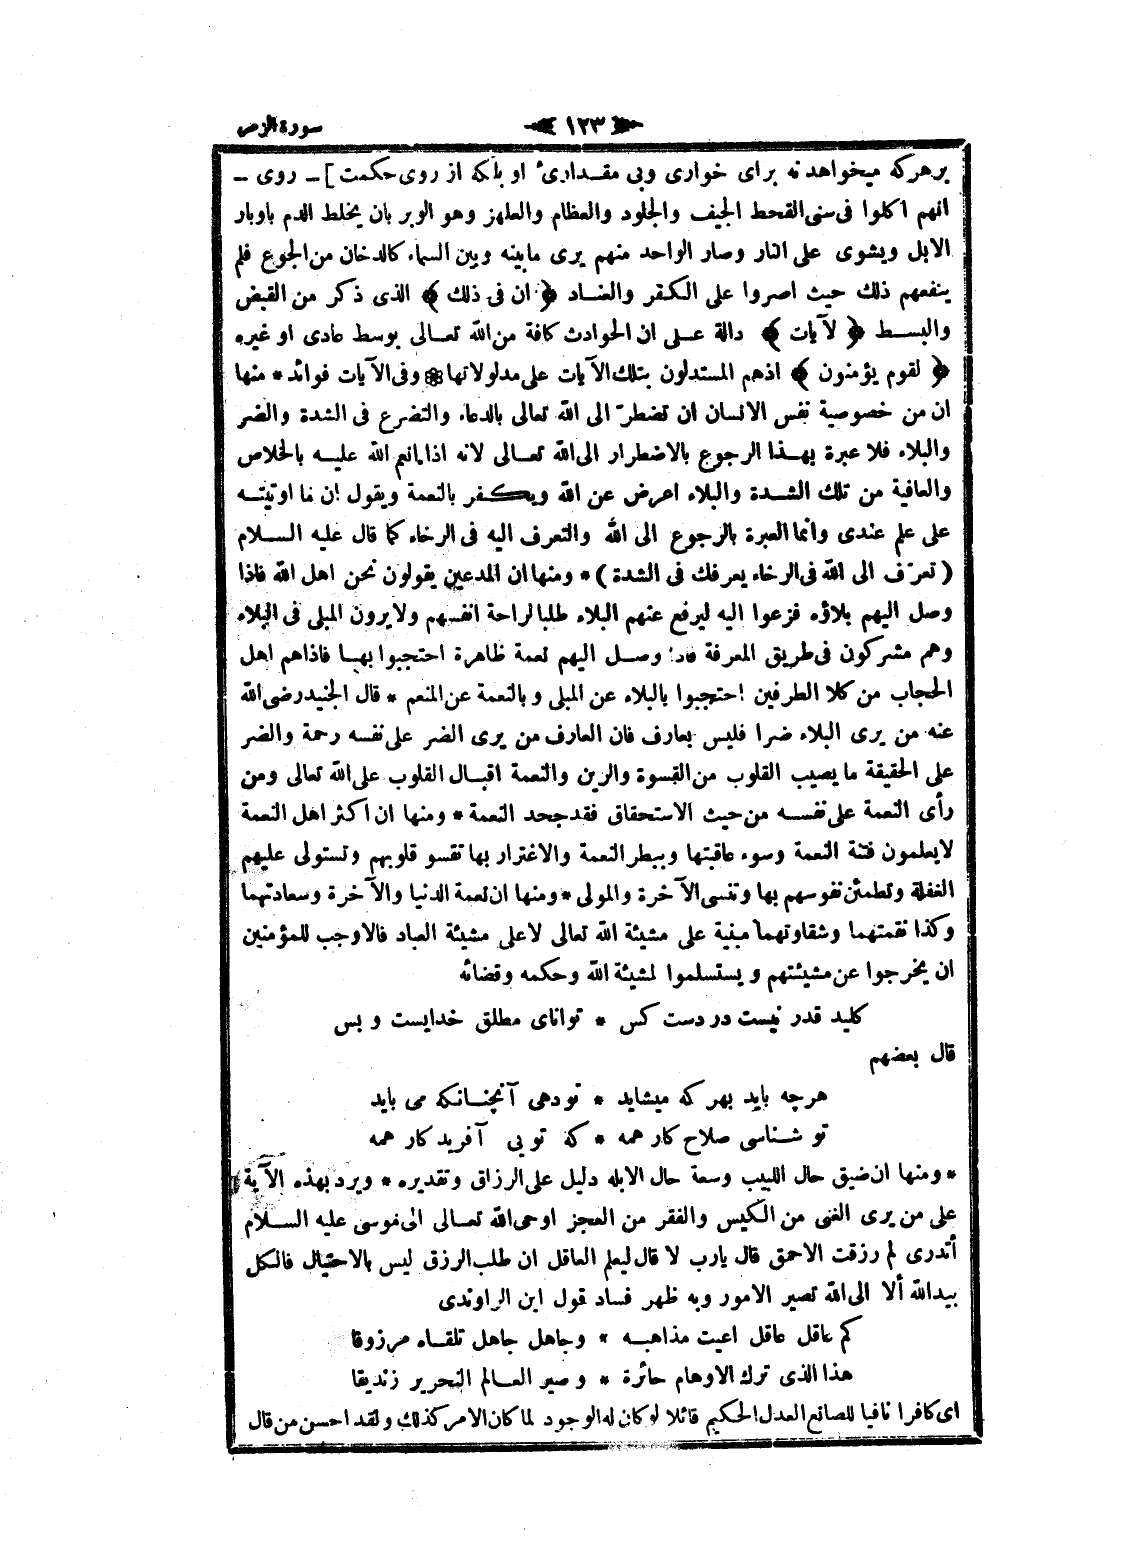 سورة الزمر
١٢٣
برهركه ميخواهد نه براى خوارى وبى مقدارئ او بلكه از روى حكمت ] ـ روى ـ
انهم اكلوا فى سنى القحط الجيف والجلود والعظام والعلهز وهو الوبر بان يخلط الدم باوبار
الابل ويشوى على النار وصار الواحد منهم يرى مابينه وبين السماء كالدخان من الجوع فلم
ينفعهم ذلك حيث اصروا على الكفر والعناد ﴿ ان فى ذلك ﴾ الذى ذكر من القبض
والبسط ﴿ لآيات ﴾ دالة على ان الحوادث كافة من الله تعالى بوسط عادى او غيره
﴿ لقوم يؤمنون ﴾ اذهم المستدلون بتلك الآيات على مدلولاتها ❁ وفى الآيات فوائد * منها
ان من خصوصية نفس الانسان ان تضطرّ الى الله تعالى بالدعاء والتضرع فى الشدة والضر
والبلاء فلا عبرة بهذا الرجوع بالاضطرار الى الله تعالى لانه اذا انعم الله عليه بالخلاص
والعافية من تلك الشدة والبلاء اعرض عن الله ويكفر بالنعمة ويقول انما اوتيته
على علم عندى وانما العبرة بالرجوع الى الله والتعرف اليه فى الرخاء كما قال عليه السلام
( تعرّف الى الله فى الرخاء يعرفك فى الشدة ) * ومنها ان المدعين يقولون نحن اهل الله فاذا
وصل اليهم بلاؤه فزعوا اليه ليرفع عنهم البلاء طلبا لراحة انفسهم ولايرون المبلى فى البلاء
وهم مشركون فى طريق المعرفة فاذا وصل اليهم نعمة ظاهرة احتجبوا بها فاذاهم اهل
الحجاب من كلا الطرفين احتجبوا بالبلاء عن المبلى وبالنعمة عن المنعم * قال الجنيد رضى الله
عنه من يرى البلاء ضرا فليس بعارف فان العارف من يرى الضر على نفسه رحمة والضر
على الحقيقة ما يصيب القلوب من القسوة والرين والنعمة اقبال القلوب على الله تعالى ومن
رأى النعمة على نفسه من حيث الاستحقاق فقد جحد النعمة * ومنها ان اكثر اهل النعمة
لايعلمون فتنة النعمة وسوء عاقبتها وببطر النعمة والاغترار بها تقسو قلوبهم وتستولى عليهم
الغفلة وتطمئن نفوسهم بها وتنسى الآخرة والمولى * ومنها ان نعمة الدنيا والآخرة وسعادتهما
وكذا نقمتهما وشقاوتهما مبنية على مشيئة الله تعالى لاعلى مشيئة العباد فالاوجب للمؤمنين
ان يخرجوا عن مشيئتهم ويستسلموا لمشيئة الله وحكمه وقضائه
كليد قدر نيست در دست كس * تواناى مطلق خدايست و بس
قال بعضهم
هرچه بايد بهر كه ميشايد * تو دهى آنچنانكه مى بايد
تو شناسى صلاح كار همه * كه تويى آفريد كار همه
* ومنها ان ضيق حال اللبيب وسعة حال الابله دليل على الرزاق وتقديره * ويرد بهذه الآية
على من يرى الغنى من الكيس والفقر من العجز اوحى الله تعالى الى موسى عليه السلام
أتدرى لم رزقت الاحمق قال يارب لا قال ليعلم العاقل ان طلب الرزق ليس بالاحتيال فالكل
بيد الله ألا الى الله تصير الامور وبه ظهر فساد قول ابن الراوندى
كم عاقل عاقل اعيت مذاهبه * وجاهل جاهل تلقاه مرزوقا
هذا الذى ترك الاوهام حائرة * وصير العالم النحرير زنديقا
اى كافرا نافيا للصانع العدل الحكيم قائلا لوكان له الوجود لما كان الامر كذلك ولقد احسن من قال